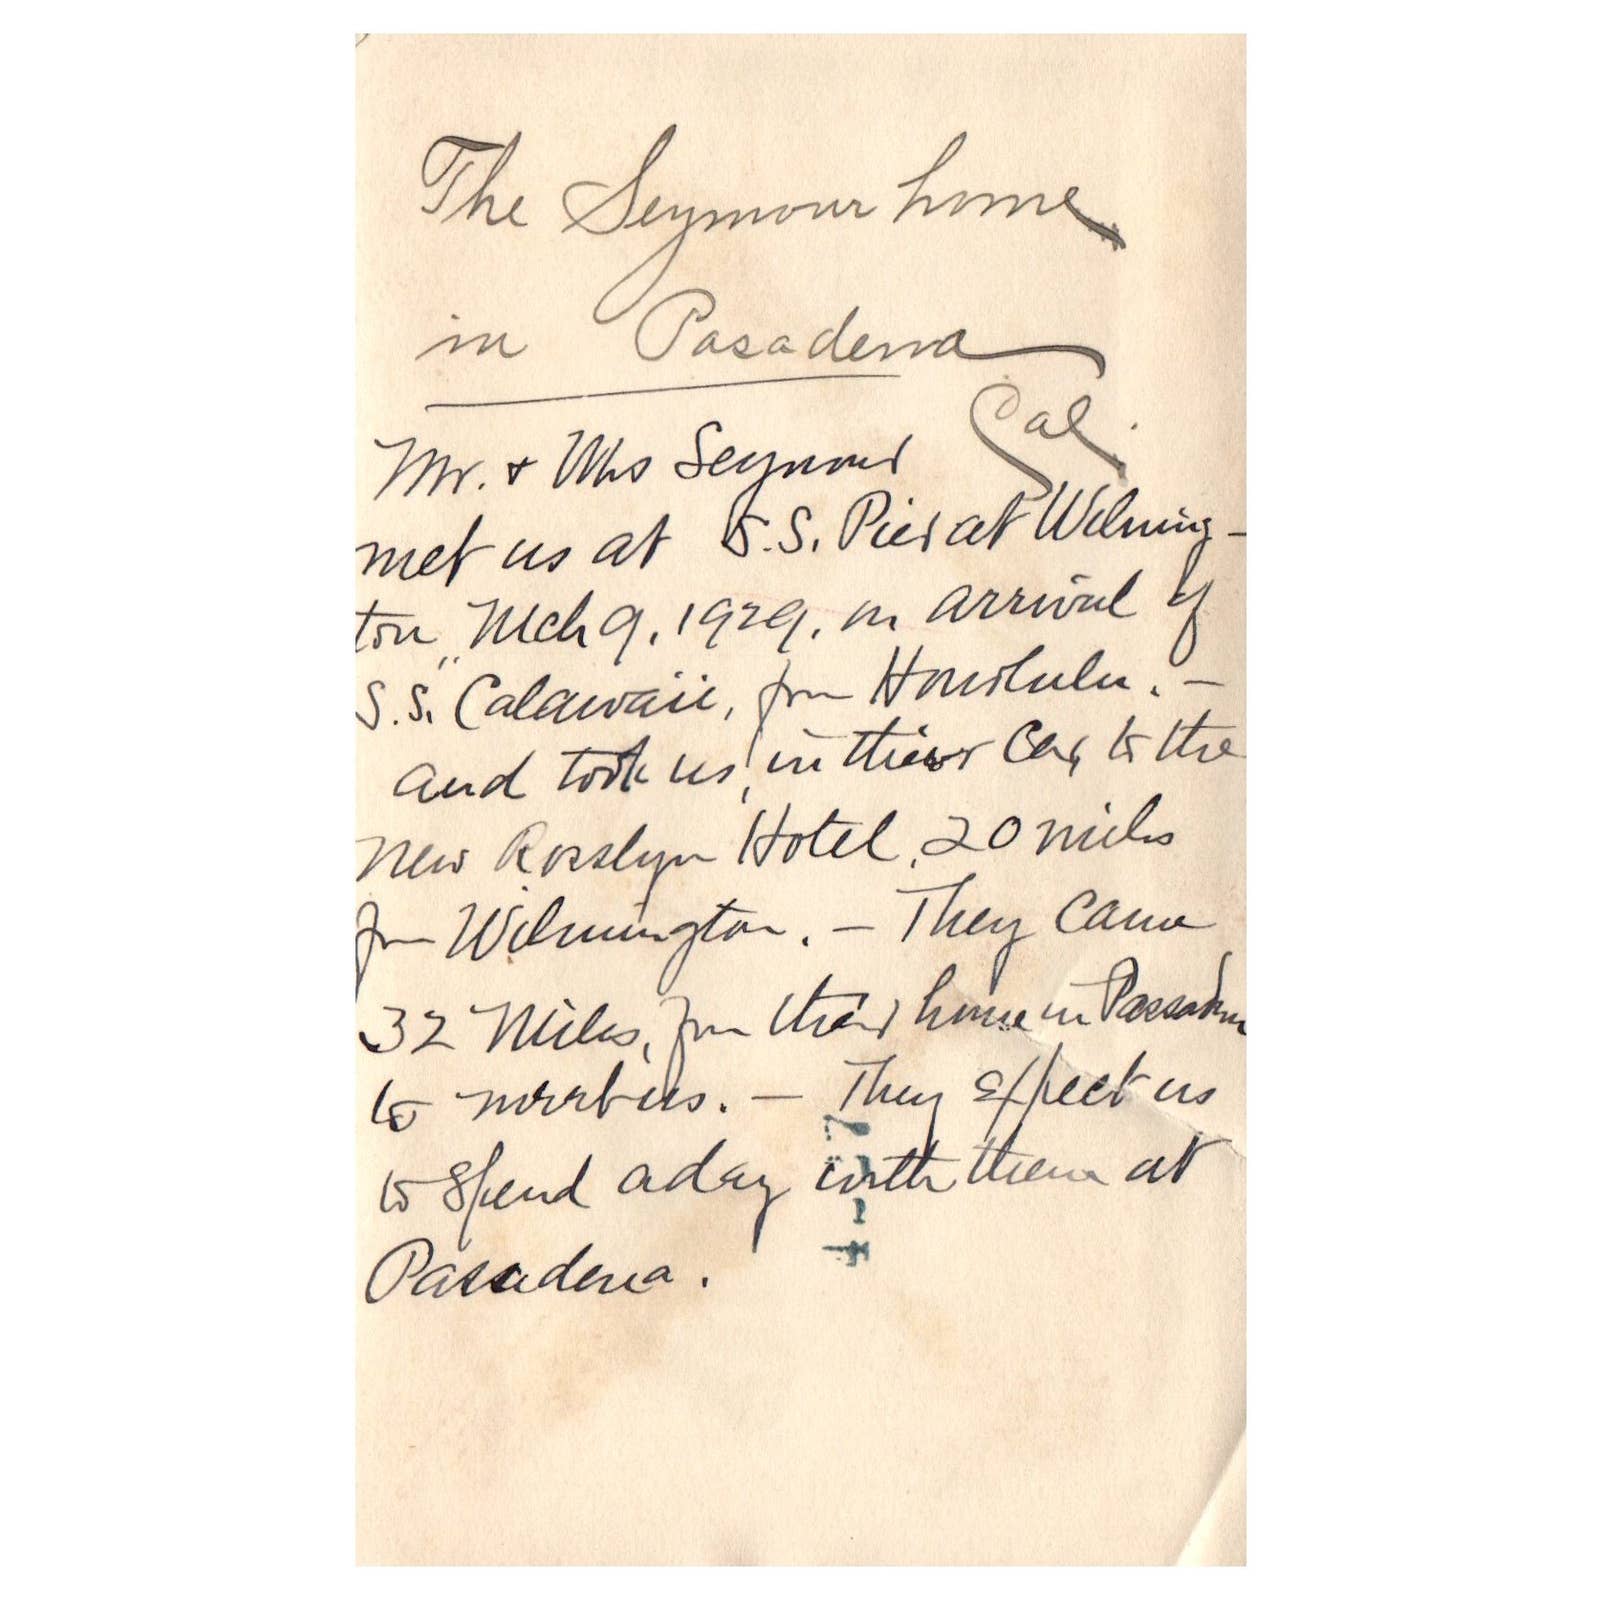 The Seymour home
in Pasadena
Cal.
Mr. + Mrs Seymour
met us at S.S. Pier at Wilming-
ton, Mch 9, 1929, on arrival of
S.S. Calawaii, from Honolulu. -
and took us, in their Car, to the
New Rosslyn Hotel, 20 miles
from Wilmington. - They came
32 Miles, from their home in Passadena
to meet us. - They Expect us
to spend a day with them at
Pasadena.